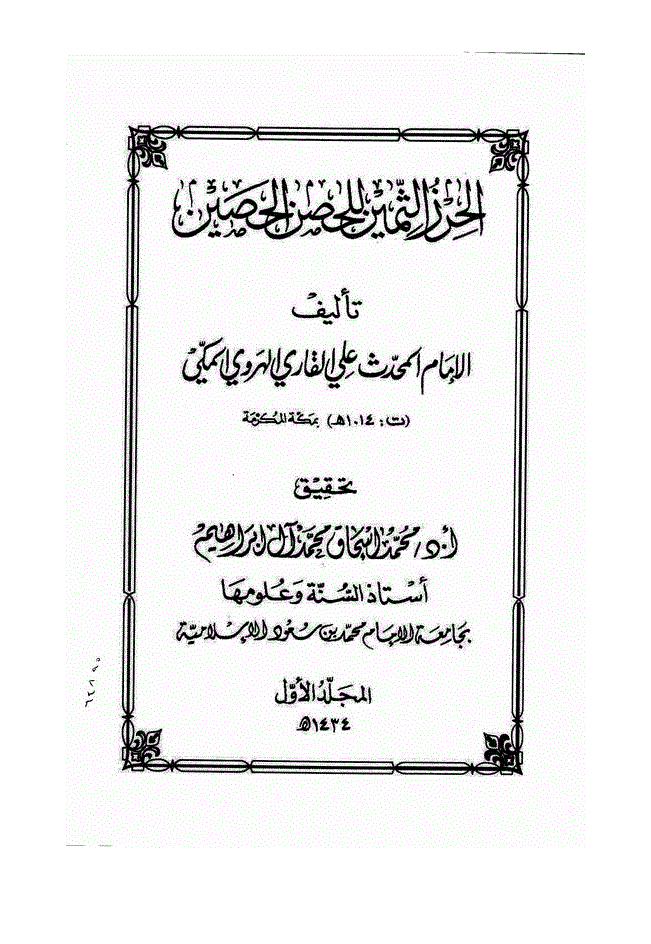 الحِرْزُ الثَّمِين للحِصْنِ الحَصَين
تأليفْ
الإِمَام المحَدّث عِلي القَاري الهَرَوي المَكيّ
(ت: ١٠١٤هـ) بمَكة المُكرّمَة
تحقِيق
أ.د/ محمَّد إسْحَاق محمَّد آل ابرَاهِيم
أسْتاذ السُنّة وَعُلومهَا
بجَامِعَة الإمَام محمّد بن سُعُود الإسْلاميّة
المجَلّدُ الأوّل
١٤٣٤هـ